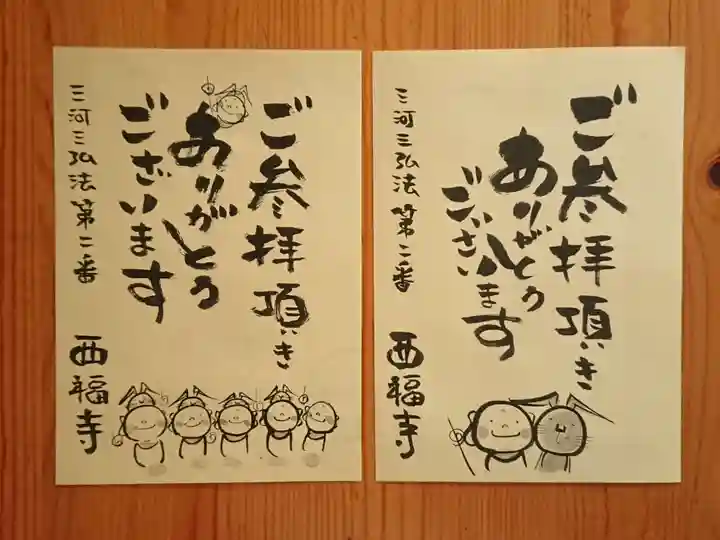 ご参拝頂き
ありがとう
ございます
三河三弘法第二番 西福寺
ご参拝頂き
ありがとう
ございます
三河三弘法第二番 西福寺